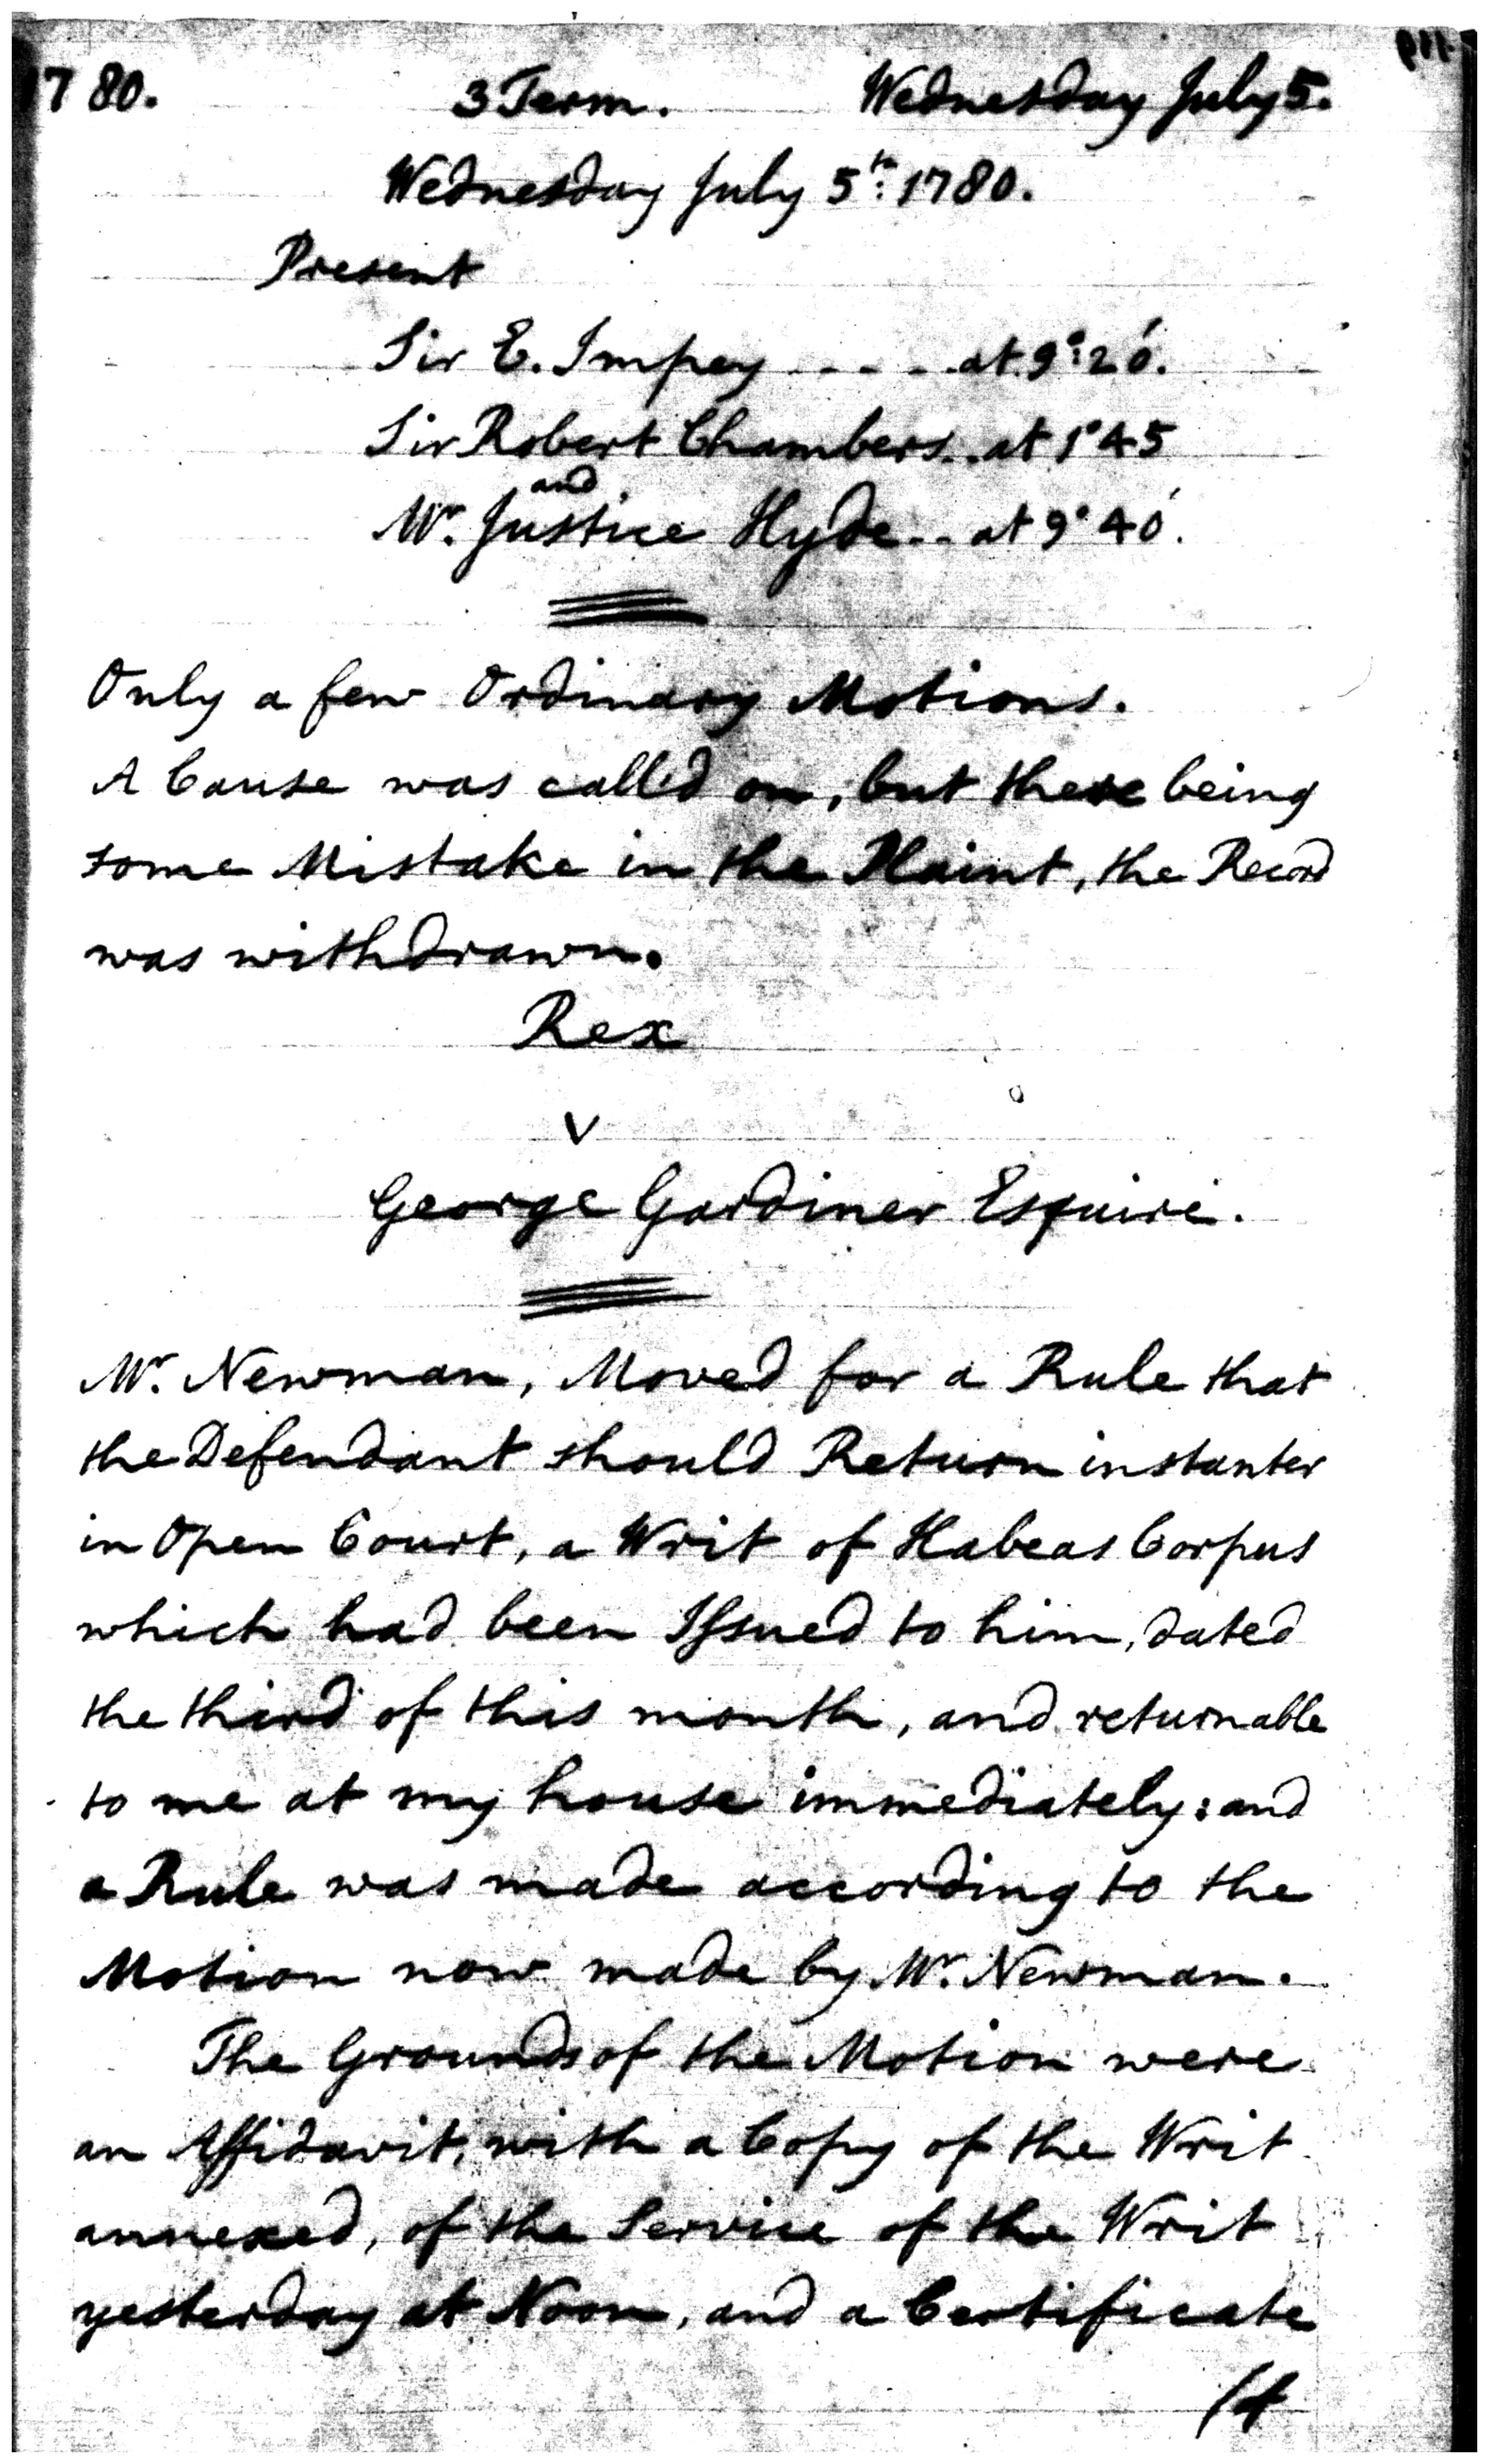 1780. 3 Term. Wednesday July 5.
Wednesday July 5th: 1780.
Present
Sir E. Impey - - - - at 9°: 20'.
Sir Robert Chambers.. at 1° 45
and
Mr. Justice Hyde.. at 9° 40'.
Only a few Ordinary Motions.
A Cause was call'd on, but there being
some Mistake in the Plaint, the Record
was withdrawn.
Rex
v
George Gardiner Esquire.
Mr. Newman, Moved for a Rule that
the Defendant should Return instanter
in Open Court, a Writ of Habeas Corpus
which had been Issued to him, dated
the third of this month, and returnable
to me at my house immediately: and
a Rule was made according to the
Motion now made by Mr. Newman.
The Grounds of the Motion were
an Affidavit, with a Copy of the Writ
annexed, of the Service of the Writ
yesterday at Noon, and a Certificate